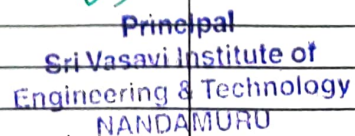 Principal
Sri Vasavi Institute of
Engineering & Technology
NANDAMURU